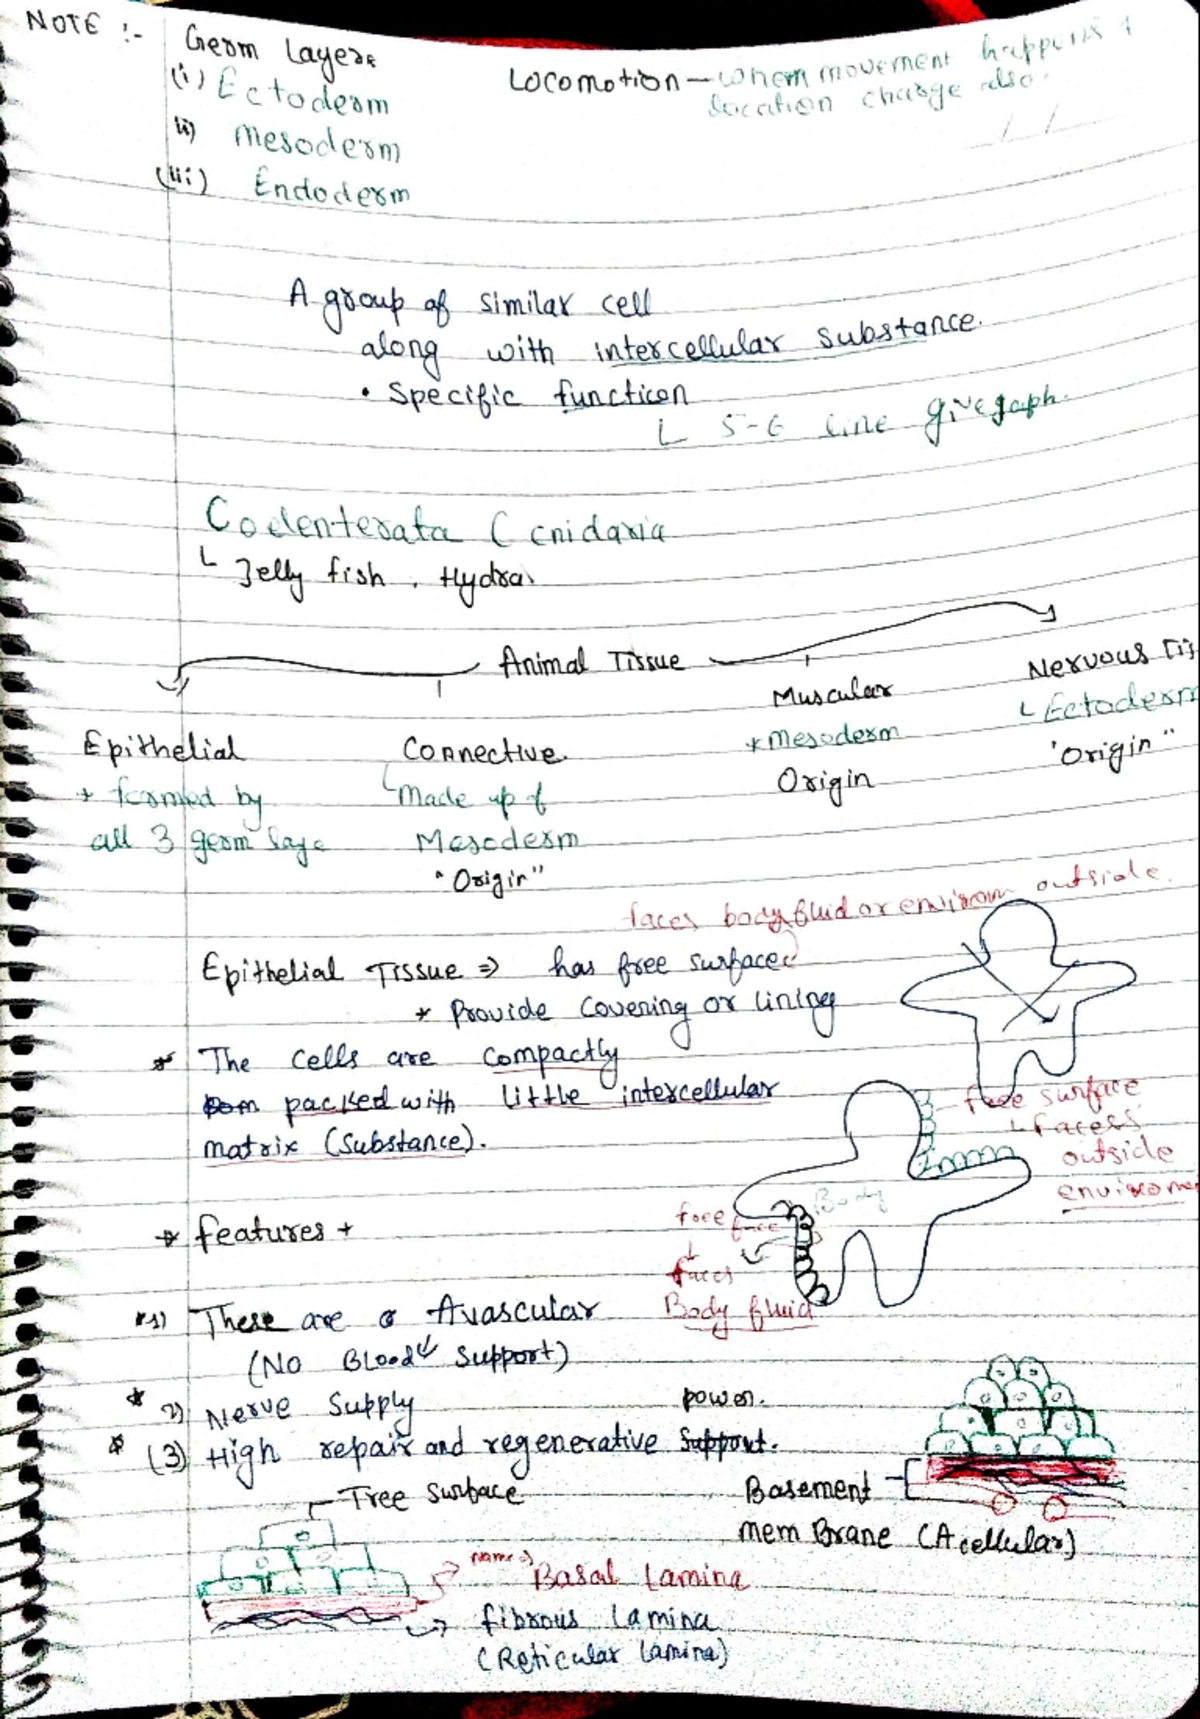 NOTE :- Germ Layers
(i) Ectoderm
ii) Mesoderm
(iii) Endoderm
Locomotion — When movement happens &
location change also
A group of similar cell
along with intercellular substance.
• Specific function
5-6 line
Coelenterata ( cnidaria
Jelly fish . Hydra
Animal Tissue
Epithelial
* formed by
all 3 germ laye
Connective.
Made up of
Mesoderm
"Origin"
Muscular
* Mesoderm
Origin
Nervous Tis
Ectoderm
'Origin"
faces body fluid or environm outside.
Epithelial Tissue ⇒ has free surface
* Provide Covering or lining
* The cells are compactly
packed with little intercellular
matrix (Substance).
free surface
faces
outside
envirome
Body
free face
↓
faces
Body fluid
* features +
*1) These are Avascular
(No Blood Support)
* 2) Nerve Supply
* (3) High repair and regenerative Support. power.
Free surface
Basement
memBrane (Acellular)
Name ⇒ Basal Lamina
→ fibrous Lamina
(Reticular lamina)